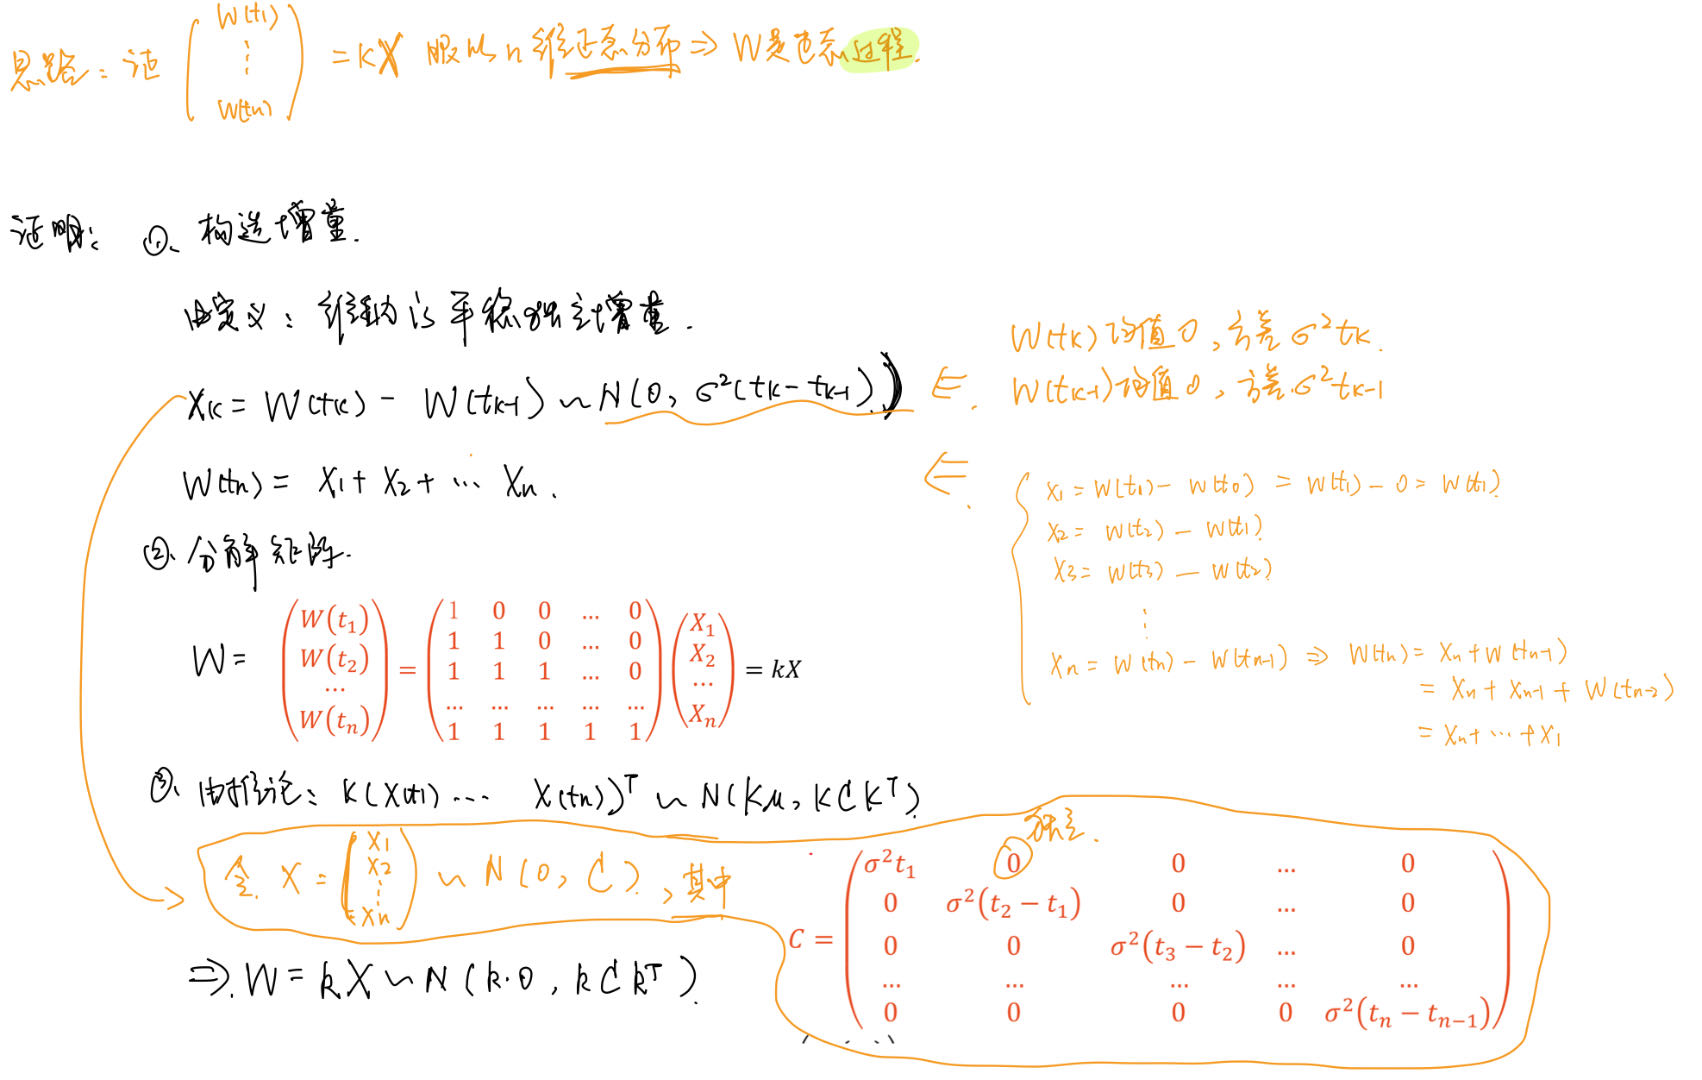 思路：证 ( W(t1) ⋮ W(tn) ) = kX 服从n维正态分布 ⇒ W是正态过程.
证明： ①、构造增量.
由定义：维纳is平稳独立增量.
Xk = W(tk) - W(tk-1) ~ N(0, σ²(tk - tk-1)) ⇐. W(tk)均值0, 方差σ²tk.
W(tk-1)均值0, 方差σ²tk-1
W(tn) = X1 + X2 + ... Xn. ⇐.
X1 = W(t1) - W(t0) = W(t1) - 0 = W(t1)
X2 = W(t2) - W(t1)
X3 = W(t3) - W(t2)
⋮
Xn = W(tn) - W(tn-1) ⇒ W(tn) = Xn + W(tn-1)
= Xn + Xn-1 + W(tn-2)
= Xn + ... + X1
②、分解矩阵.
W = ( W(t₁) W(t₂) ... W(tₙ) ) = ( 1 0 0 ... 0
1 1 0 ... 0
1 1 1 ... 0
... ... ... ... ...
1 1 1 1 1 ) ( X₁ X₂ ... Xₙ ) = kX
③、由推论： k(X(t1) ... X(tn))ᵀ ~ N(kμ, kCkᵀ)
令 X = ( X1 X2 ⋮ Xn ) ~ N(0, C), 其中
独立.
C = ( σ²t₁ 0 0 ... 0
0 σ²(t₂ − t₁) 0 ... 0
0 0 σ²(t₃ − t₂) ... 0
... ... ... ... ...
0 0 0 0 σ²(tₙ − tₙ₋₁) )
⇒. W = kX ~ N(k·0, kCkᵀ).